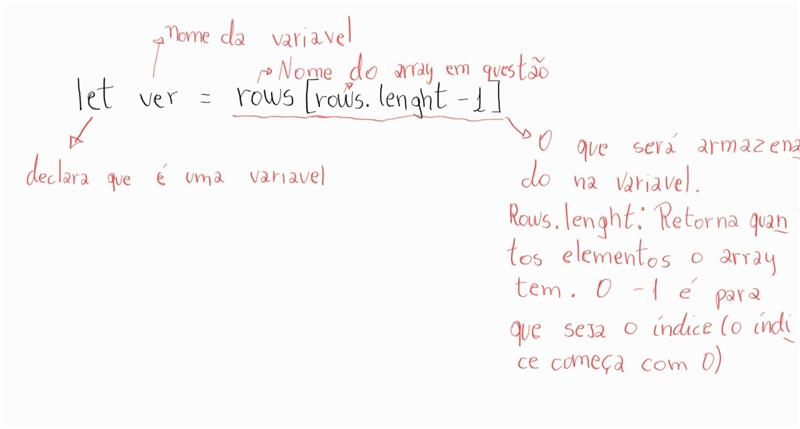 nome da variavel
Nome do array em questão
let ver = rows [rows.lenght -1]
declara que é uma variavel
O que será armazena
do na variavel.
Rows.lenght: Retorna quan
tos elementos o array
tem. O -1 é para
que seja o índice (o índi
ce começa com 0)